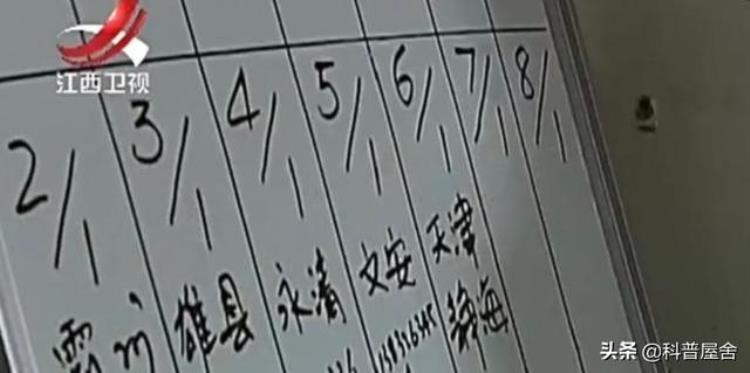 江西卫视
2/1 3/1 4/1 5/1 6/1 7/1 8/1
霸州 雄县 永清 文安 天津
静海
头条 @科普屋舍